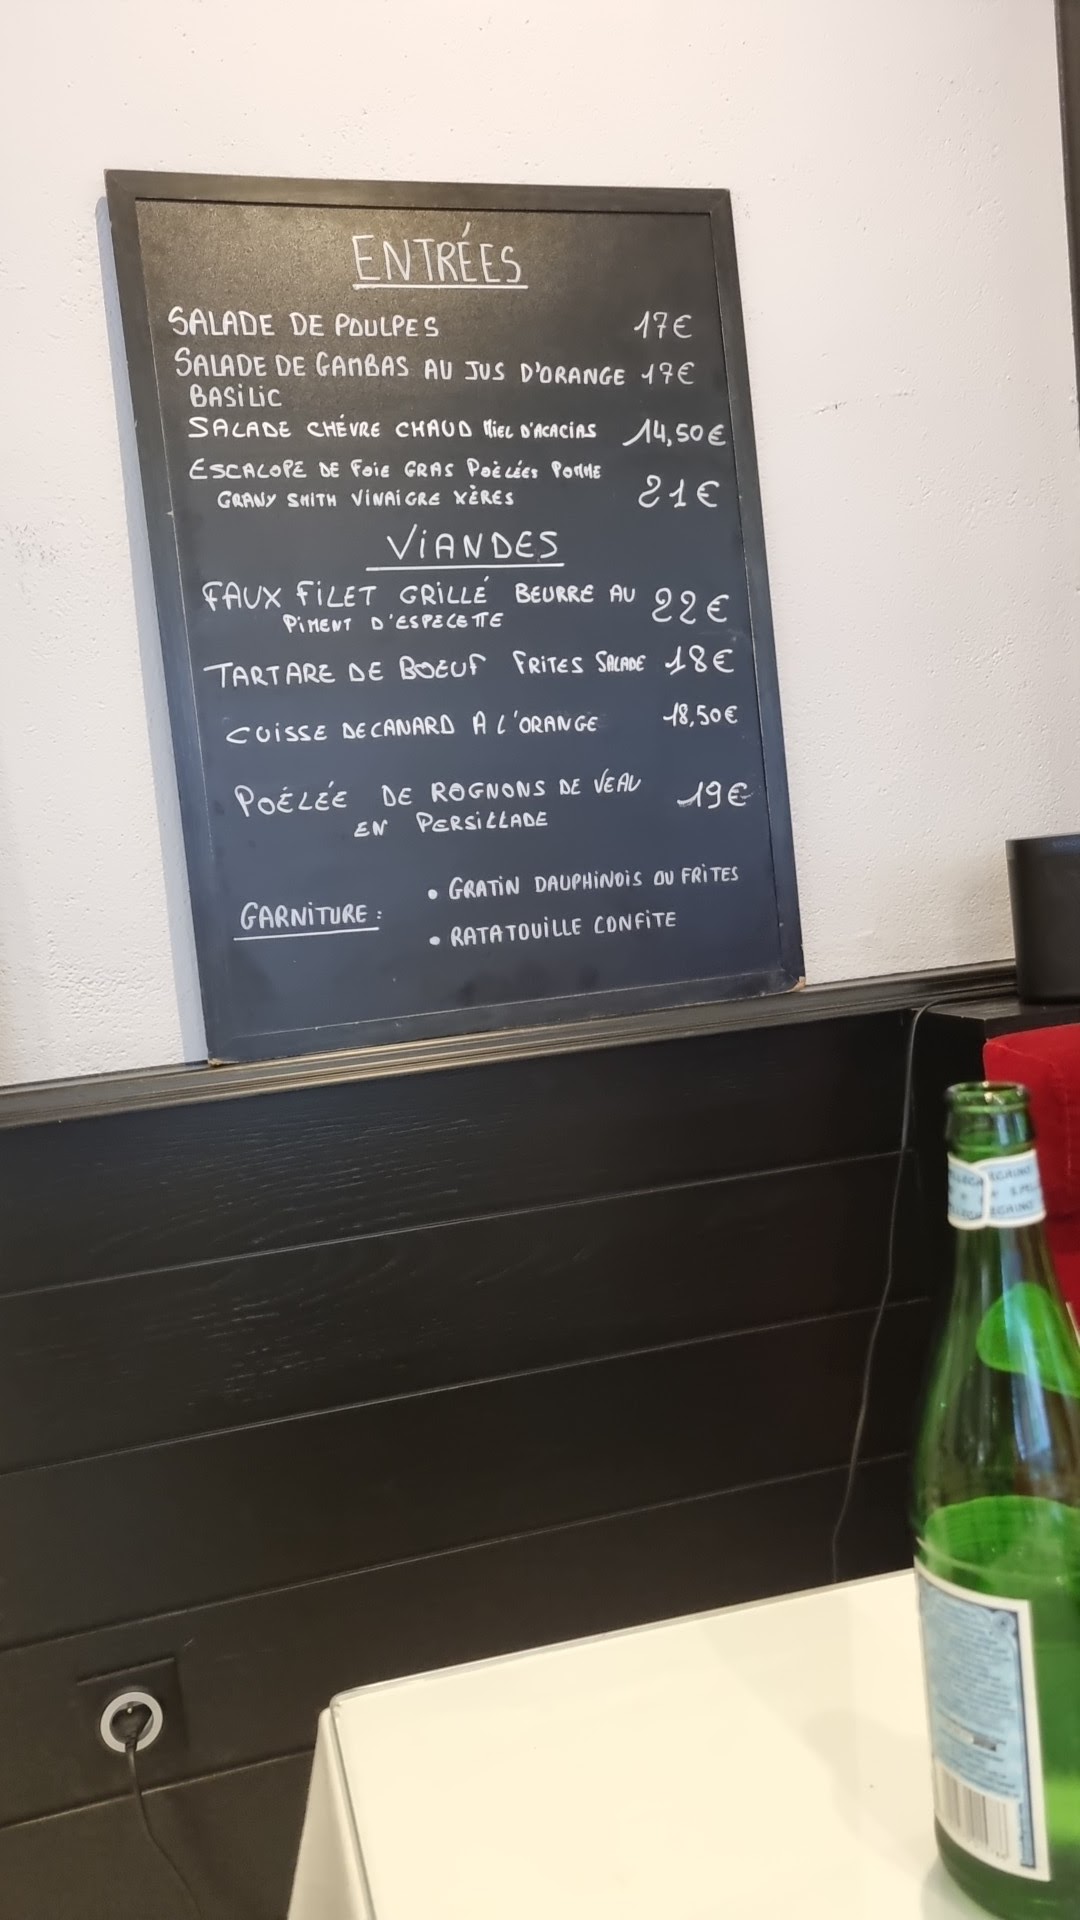 ENTRÉES
SALADE DE POULPES 17€
SALADE DE GAMBAS AU JUS D'ORANGE 17€
BASILIC
SALADE CHÉVRE CHAUD MIEL D'ACACIAS 14,50€
ESCALOPE DE FOIE GRAS POÈLÉES POMME
GRANY SMITH VINAIGRE XÈRES 21€
VIANDES
FAUX FILET GRILLÉ BEURRE AU 22€
PIMENT D'ESPECETTE
TARTARE DE BOEUF FRITES SALADE 18€
CUISSE DE CANARD A L'ORANGE 18,50€
POÉLÉE DE ROGNONS DE VEAU 19€
EN PERSILLADE
GARNITURE :
• GRATIN DAUPHINOIS OU FRITES
• RATATOUILLE CONFITE